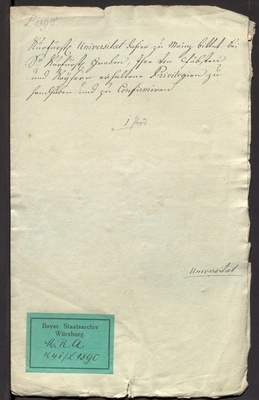 L 1390.
Universitat dahier zu Mainz bittet bei
Sr Kurfürstl. Gnaden, Ihre von Päbsten
und Kaÿsern erhaltene Privilegien zu
handhaben und zu Confirmiren
Universität
Bayer. Staatsarchiv
Würzburg
M. R. A.
K 41/L 1390